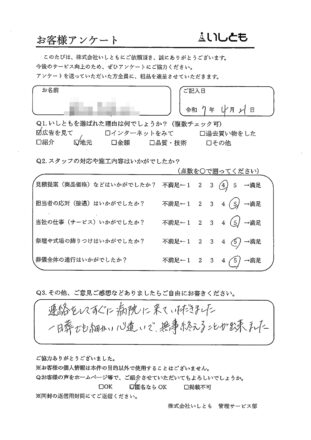 お客様アンケート
いしとも
このたびは、株式会社いしともにご依頼頂き、誠にありがとうございます。
今後のサービス向上のため、ぜひアンケートにご協力ください。
アンケートを送っていただいた方全員に、粗品を進呈させていただきます。
お名前
ご記入日
令和 7 年 4 月 21 日
Q1. いしともを選ばれた理由は何でしょうか?(複数チェック可)
☑広告を見て □インターネットをみて □過去買い物をした
□紹介 ☑地元 □金額 □品質・技術 □その他
Q2. スタッフの対応や施工内容はいかがでしたか?
(点数を○で囲ってください)
見積提案(商品価格)などはいかがでしたか? 不満足←1 2 3 4 5 →満足
担当者の応対(接遇)はいかがでしたか? 不満足←1 2 3 4 5 →満足
当社の仕事(サービス)いかがでしたか? 不満足←1 2 3 4 5 →満足
祭壇や式場の飾りつけはいかがでしたか? 不満足←1 2 3 4 5 →満足
葬儀全体の進行はいかがでしたか? 不満足←1 2 3 4 5 →満足
Q3. その他、ご意見ご感想などありましたらご自由にお書きください。
連絡をしてすぐに病院に来ていただきました
一日葬でも細かい心遣いで、無事終えることが出来ました
ご協力ありがとうございました。
※お客様の個人情報は本件の目的以外で使用することはございません。
Qお客様の声をホームページ等で、ご紹介させていただいてもよろしいでしょうか。
□OK ☑匿名なら OK □掲載不可
※同封の返信用封筒にてご返送ください。
株式会社いしとも 管理サービス部